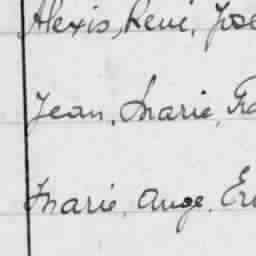 Alexis, René, José
Jean, Marie, Fra
Marie, Ange, Er